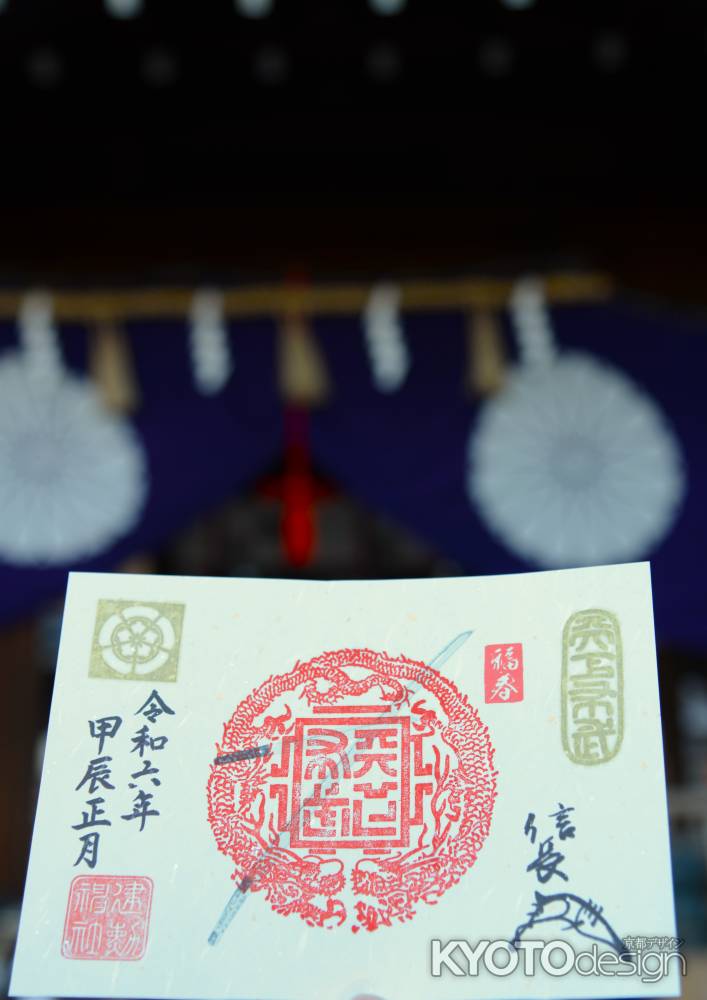 天下布武
福春
信長
令和六年
甲辰正月
建勲神社
京都デザイン
KYOTOdesign